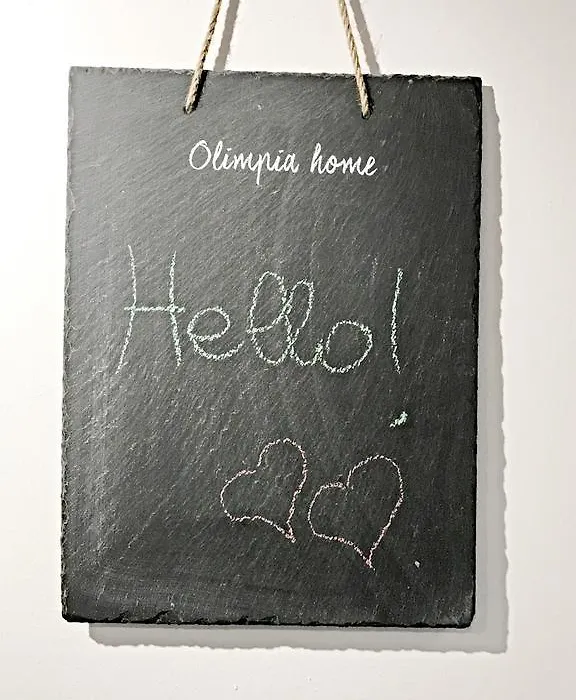 Olimpia home
Hello!